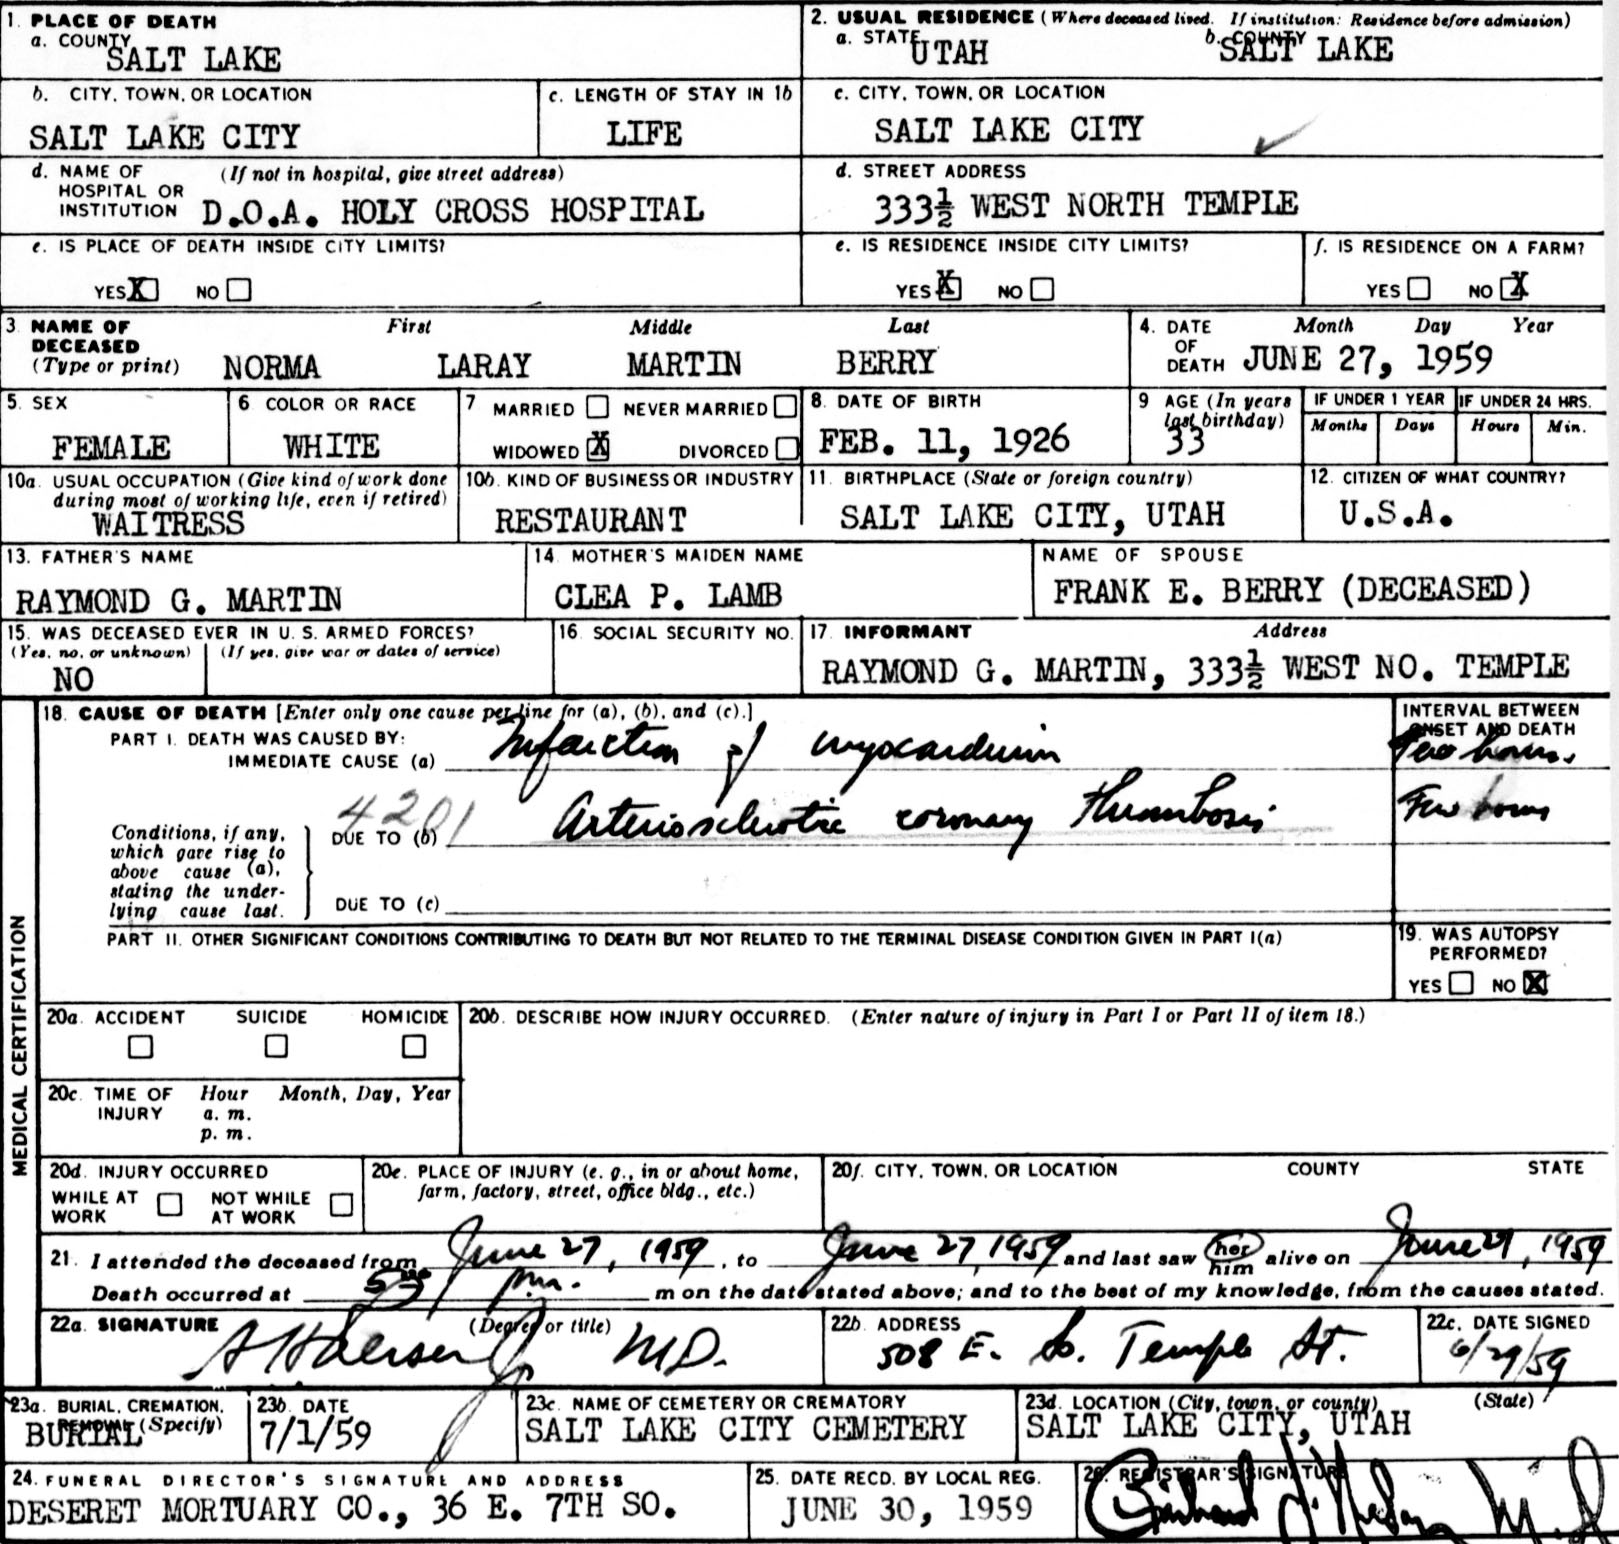 1. PLACE OF DEATH
a. COUNTY
SALT LAKE
2. USUAL RESIDENCE (Where deceased lived. If institution: Residence before admission)
a. STATE UTAH b. COUNTY SALT LAKE
b. CITY, TOWN, OR LOCATION
SALT LAKE CITY
c. LENGTH OF STAY IN 1b
LIFE
c. CITY, TOWN, OR LOCATION
SALT LAKE CITY
d. NAME OF (If not in hospital, give street address)
HOSPITAL OR
INSTITUTION D.O.A. HOLY CROSS HOSPITAL
d. STREET ADDRESS
333½ WEST NORTH TEMPLE
e. IS PLACE OF DEATH INSIDE CITY LIMITS?
YES X NO
e. IS RESIDENCE INSIDE CITY LIMITS?
YES X NO
f. IS RESIDENCE ON A FARM?
YES NO X
3. NAME OF First Middle Last
DECEASED
(Type or print) NORMA LARAY MARTIN BERRY
4. DATE Month Day Year
OF
DEATH JUNE 27, 1959
5. SEX
FEMALE
6 COLOR OR RACE
WHITE
7 MARRIED NEVER MARRIED
WIDOWED X DIVORCED
8. DATE OF BIRTH
FEB. 11, 1926
9 AGE (In years
last birthday)
33
IF UNDER 1 YEAR
Months Days
IF UNDER 24 HRS.
Hours Min.
10a. USUAL OCCUPATION (Give kind of work done
during most of working life, even if retired)
WAITRESS
10b. KIND OF BUSINESS OR INDUSTRY
RESTAURANT
11. BIRTHPLACE (State or foreign country)
SALT LAKE CITY, UTAH
12. CITIZEN OF WHAT COUNTRY?
U.S.A.
13. FATHER'S NAME
RAYMOND G. MARTIN
14. MOTHER'S MAIDEN NAME
CLEA P. LAMB
NAME OF SPOUSE
FRANK E. BERRY (DECEASED)
15. WAS DECEASED EVER IN U. S. ARMED FORCES?
(Yes, no, or unknown) (If yes, give war or dates of service)
NO
16. SOCIAL SECURITY NO.
17. INFORMANT Address
RAYMOND G. MARTIN, 333½ WEST NO. TEMPLE
MEDICAL CERTIFICATION
18. CAUSE OF DEATH [Enter only one cause per line for (a), (b), and (c).]
PART I. DEATH WAS CAUSED BY:
IMMEDIATE CAUSE (a) Infarction of myocardium
INTERVAL BETWEEN
ONSET AND DEATH
Few hours.
4201
Conditions, if any,
which gave rise to
above cause (a),
stating the under-
lying cause last.
DUE TO (b) Arteriosclerotic coronary thrombosis
Few hours
DUE TO (c)
PART II. OTHER SIGNIFICANT CONDITIONS CONTRIBUTING TO DEATH BUT NOT RELATED TO THE TERMINAL DISEASE CONDITION GIVEN IN PART I(a)
19. WAS AUTOPSY
PERFORMED?
YES NO X
20a. ACCIDENT SUICIDE HOMICIDE
20b. DESCRIBE HOW INJURY OCCURRED. (Enter nature of injury in Part I or Part II of item 18.)
20c. TIME OF Hour Month, Day, Year
INJURY a. m.
p. m.
20d. INJURY OCCURRED
WHILE AT WORK NOT WHILE AT WORK
20e. PLACE OF INJURY (e. g., in or about home,
farm, factory, street, office bldg., etc.)
20f. CITY, TOWN, OR LOCATION COUNTY STATE
21. I attended the deceased from June 27, 1959, to June 27, 1959 and last saw her him alive on June 27, 1959
Death occurred at p.m. m on the date stated above; and to the best of my knowledge, from the causes stated.
22a. SIGNATURE (Degree or title)
M.D.
22b. ADDRESS
508 E. So. Temple St.
22c. DATE SIGNED
6/29/59
23a. BURIAL, CREMATION,
REMOVAL (Specify)
BURIAL
23b. DATE
7/1/59
23c. NAME OF CEMETERY OR CREMATORY
SALT LAKE CITY CEMETERY
23d. LOCATION (City, town, or county) (State)
SALT LAKE CITY, UTAH
24. FUNERAL DIRECTOR'S SIGNATURE AND ADDRESS
DESERET MORTUARY CO., 36 E. 7TH SO.
25. DATE RECD. BY LOCAL REG.
JUNE 30, 1959
26. REGISTRAR'S SIGNATURE